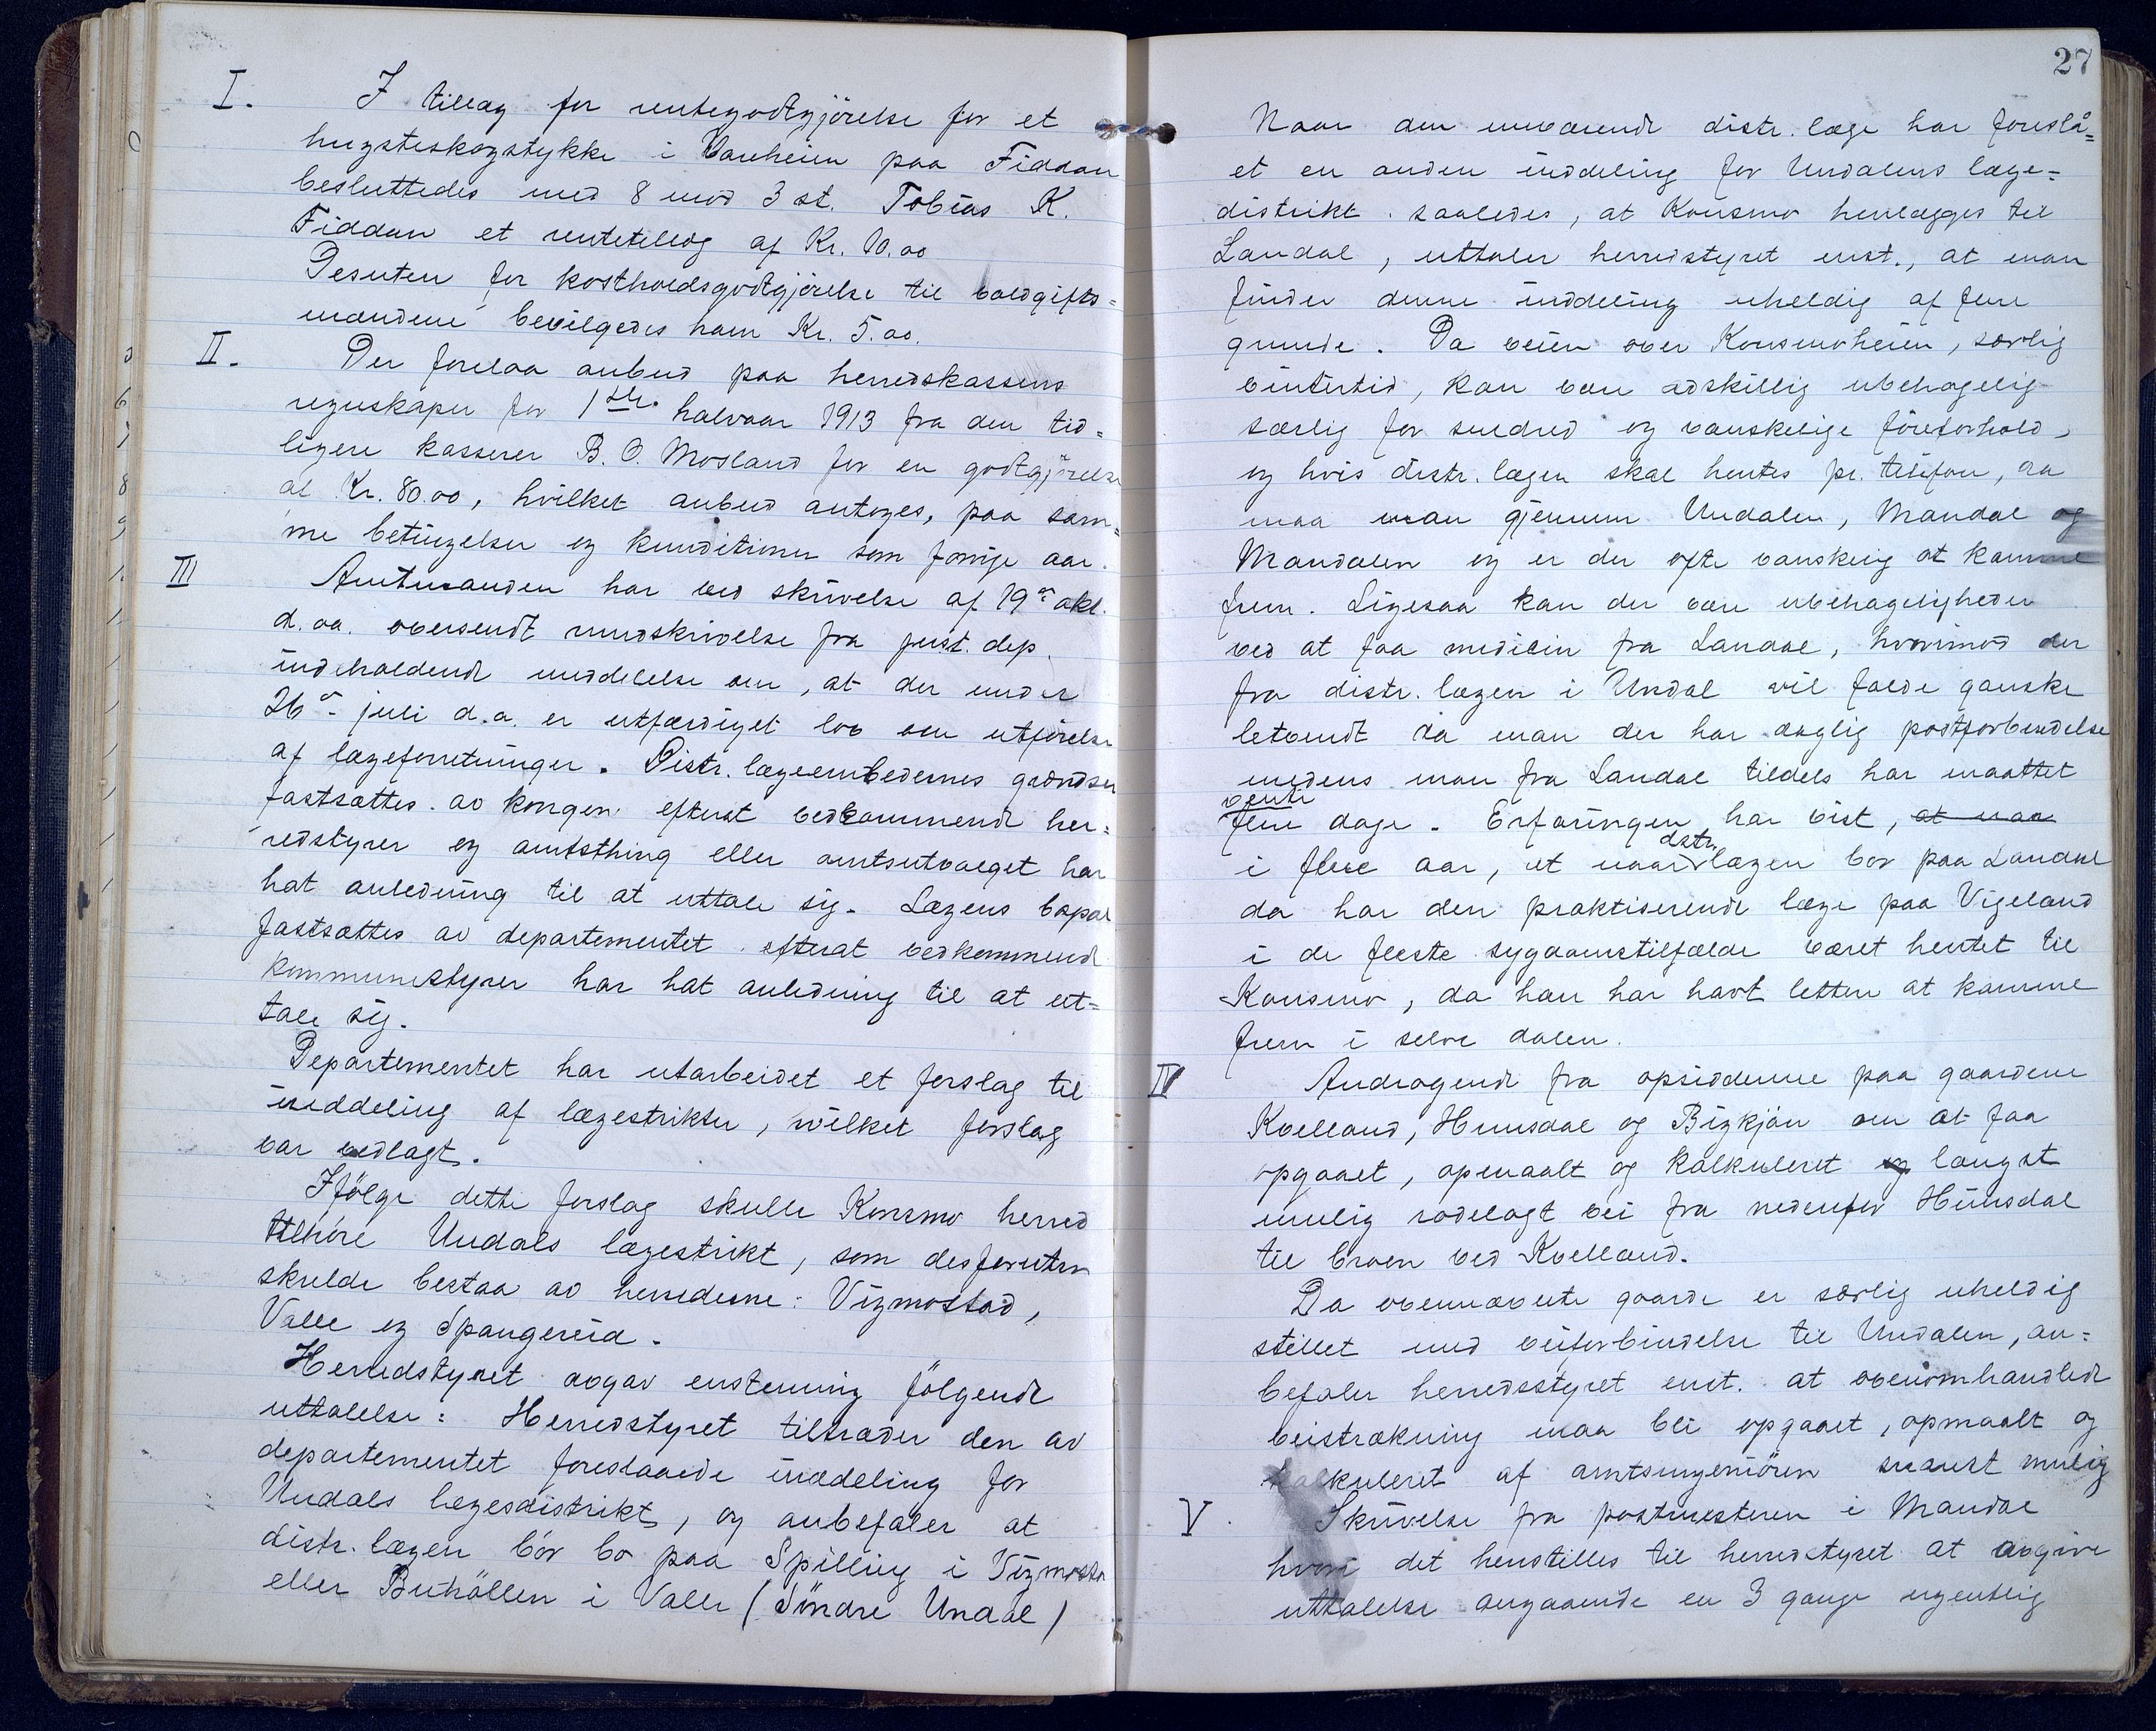 I. I tillæg for rentegodtgjörelse for et
hugsteskogstykke i Vanheien paa Fiddan
besluttedes med 8 mod 3 st. Tobias K.
Fiddan et rentetillæg af Kr. 10.00
Desuten for kostholdsgodtgjörelse til voldgifts=
mændene bevilgedes ham Kr. 5.00.
II. Der forelaa anbud paa herredskassens
regnskaper for 1ste halvaar 1913 fra den tid=
ligere kasserer B. O. Mosland for en godtgjörelse
al Kr. 80.00, hvilket anbud antoges, paa sam=
me betingelser og kunditioner som forrige aar.
III Amtmanden har ved skrivelse af 19de okt.
d. aa. oversendt rundskrivelse fra just. dep.
indeholdende meddelelse om, at der under
26de juli d.a. er utfærdiget lov om utförelse
af lægeforretninger. Distr. lægeembedernes grændser
fastsættes av kongen efterat vedkommende her=
redstyrer og amtsthing eller amtsutvalget har
hat anledning til at uttale sig. Lægens bopæl
fastsættes av departementet efterat vedkommende
kommunestyrer har hat anledning til at ut=
tale sig.
Departementet har utarbeidet et forslag til
inddeling af lægestrikter, hvilket forslag
var vedlagt.
Ifölge dette forslag skulle Konsmo herred
tilhöre Undals lægestrikt, som desforuten
skulde bestaa av herrederne: Vigmostad,
Valle og Spangereid.
Herredstyret avgav enstemmig fölgende
uttalelse: Herredstyret tiltræder den av
departementet foreslaaede inddeling for
Undals lægesdistrikt, og anbefaler at
distr. lægen bör bo paa Spilling i Vigmosta
eller Buhöllen i Valle (Söndre Undal)
27
Naar den nuværende distr. læge har foreslå=
et en anden inddeling for Undalens læge=
distrikt. saaledes, at Konsmo henlægges til
Laudal, uttaler herredstyret enst., at man
finder denne inddeling uheldig af flere
grunde. Da veien over Konsmoheien, særlig
vintertid, kan være adskillig ubehagelig
særlig for snedred og vanskelige föreforhold,
og hvis distr. lægen skal hentes pr. telefon, da
maa man gjennem Undalen, Mandal og
Mandalen og er der ofte vanskelig at komme
frem. Ligesaa kan der være ubehageligheder
ved at faa medicin fra Laudal, hvorimod der
fra distr. lægen i Undal vil falde ganske
letvendt da man der har daglig postforbindelse
medens man fra Laudal tildels har maattet
vente
flere dage. Erfaringen har vist, at naar
i flere aar, at naar distr. lægen bor paa Laudal
da har den praktiserende læge paa Vigeland
i de fleste sygdomstilfælde været hentet til
Konsmo, da han har havt lettere at komme
frem i selve dalen.
IV Andragende fra opsidderne paa gaardene
Kvelland, Hunsdal og Bigkjön om at faa
opgaaet, opmaalt og kalkuleret og langst
mulig rodelagt vei fra nedenfor Hunsdal
til broen ved Kvelland.
Da ovennævnte gaarde er særlig uheldig
stillet med veiforbindelse til Undalen, an=
befaler herredsstyret enst. at ovenomhandlede
veistrækning maa bli opgaaet, opmaalt og
kalkuleret af amtsingeniören snarest mulig
V. Skrivelse fra postmesteren i Mandal
hvori det henstilles til herredstyret at avgive
uttalelse angaaende en 3 gange ugentlig